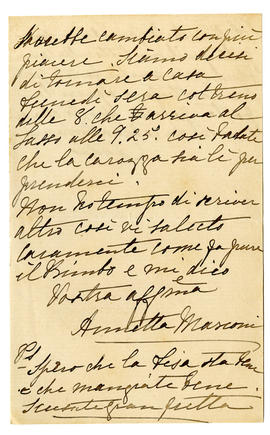 sarebbe cambiato con più
piacere. Siamo decisi
di tornare a casa
Lunedì sera col treno
delle 8. che arriva al
Sasso alle 9.25. così badate
che la carozza sia lì per
prenderci.
Non ho tempo di scriver
altro così vi saluto
caramente come fa pure
il Bimbo e mi dico
Vostra affma
Annetta Marconi
Ps
- Spero che la Lisa stia bene
e che mangiate bene.
Scusate gran fretta